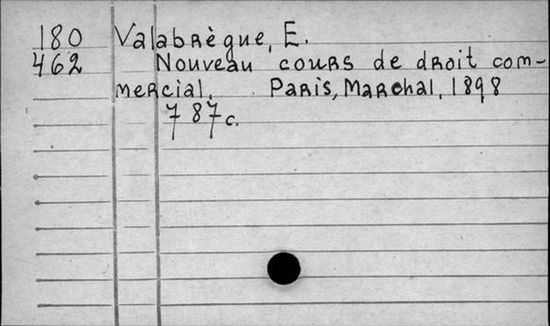 180 Valabrègue, E.
462 Nouveau cours de droit com-
mercial. Paris, Marchal, 1898
787c.